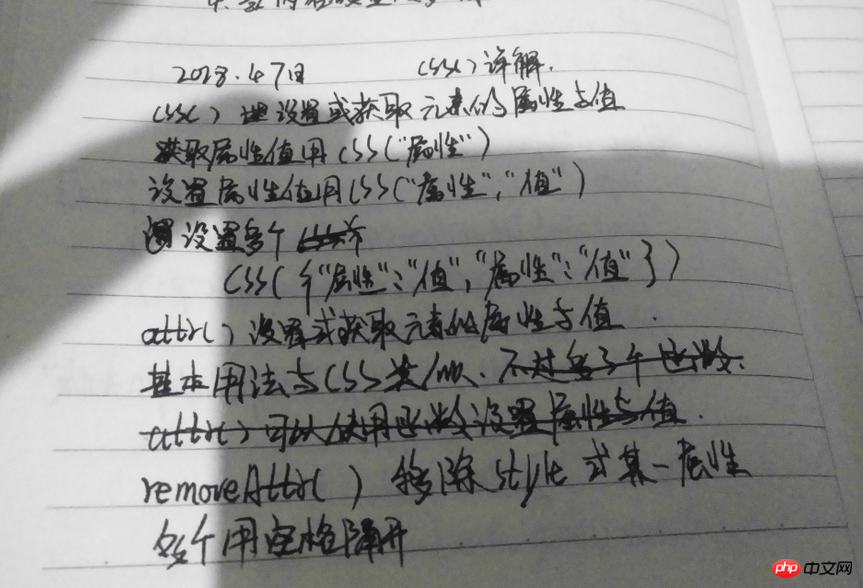 2018.4 7日 CSS()详解.
CSS() 设置或获取元素的属性与值
获取属性值用CSS("属性")
设置属性值用CSS("属性","值")
设置多个
CSS({"属性":"值","属性":"值"})
attr()设置或获取元素的属性与值.
基本用法与CSS类似、不过多了个函数.
attr()可以使用函数设置属性与值.
removeAttr()移除style或某一属性
多个用空格隔开
php中文网